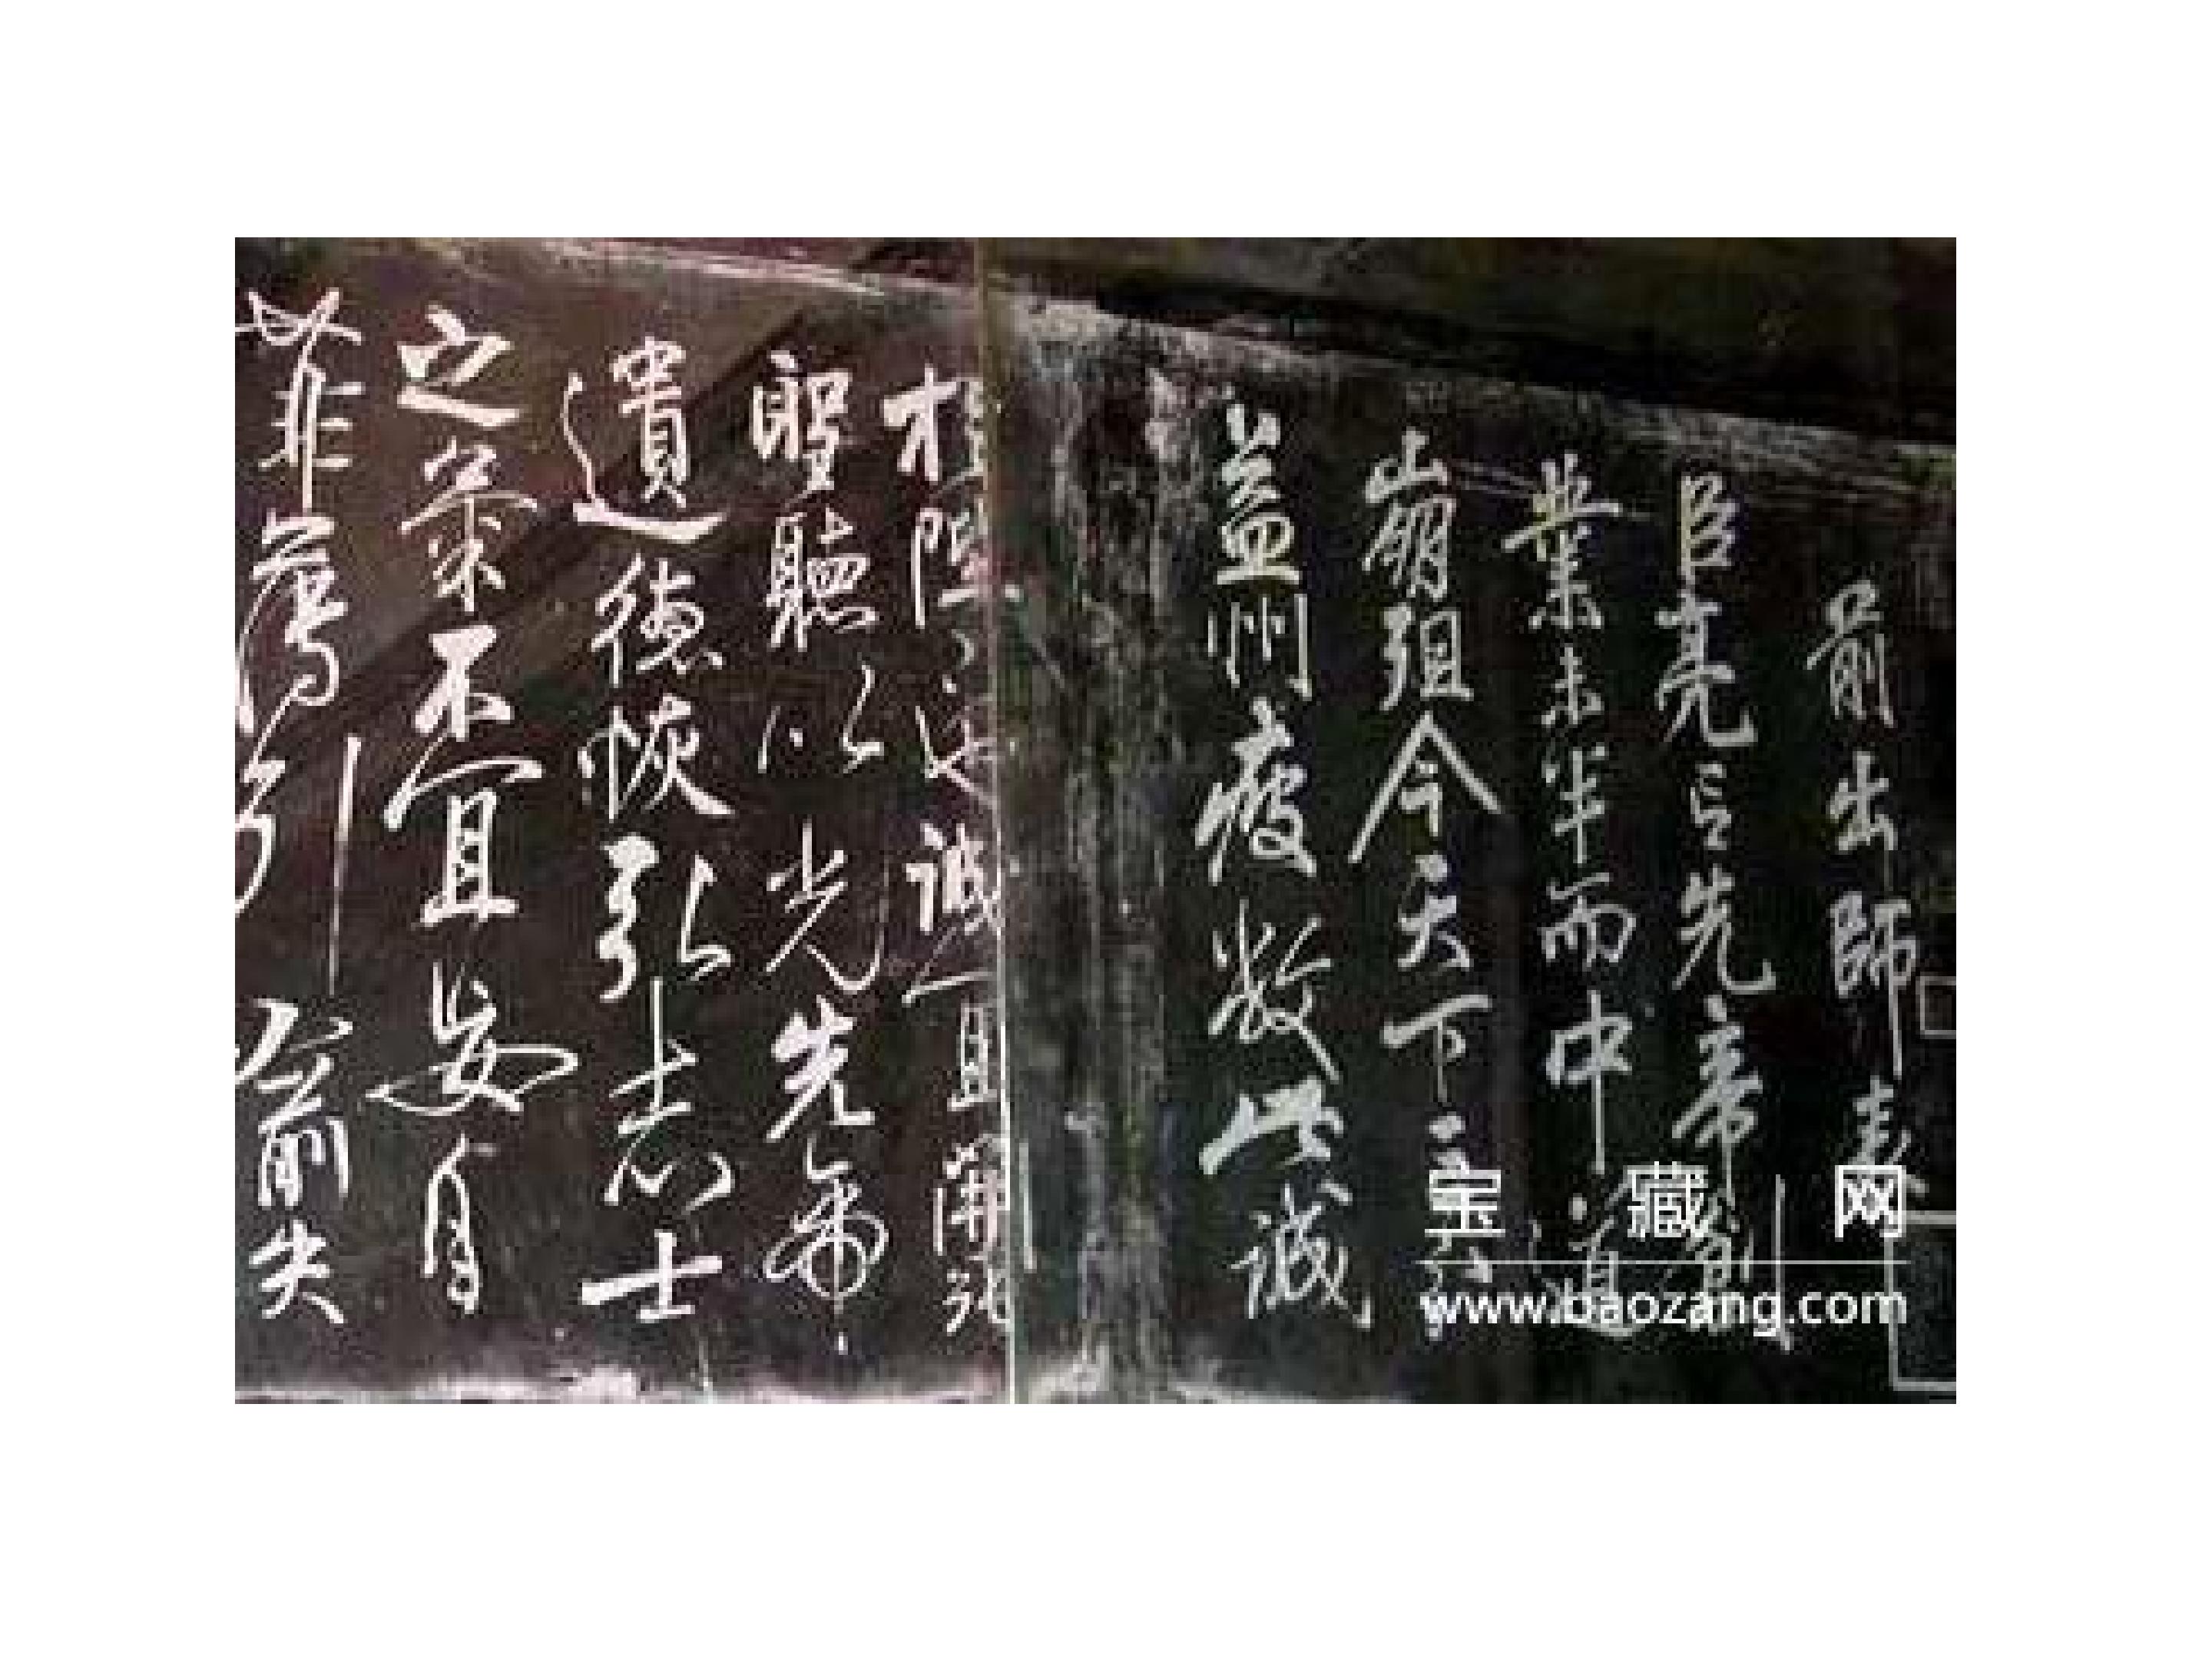 前出師表
臣亮言先帝創
業未半而中道
崩殂今天下三分
益州疲敝此誠
陛下之誠宜開張
聖聽以光先帝
遺德恢弘志士
之氣不宜妄自
菲薄引喻失
宝藏网
www.baozang.com